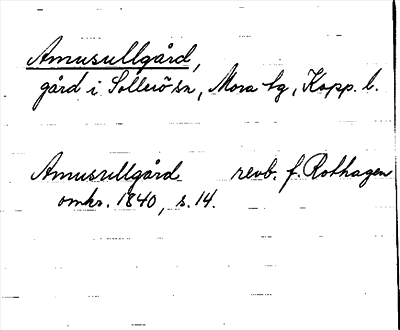 Amusullgård,
gård i Sollerö sn, Mora tg, Kopp. l.
Amusullgård revb. f. Rothagen
omkr. 1840, s. 14.